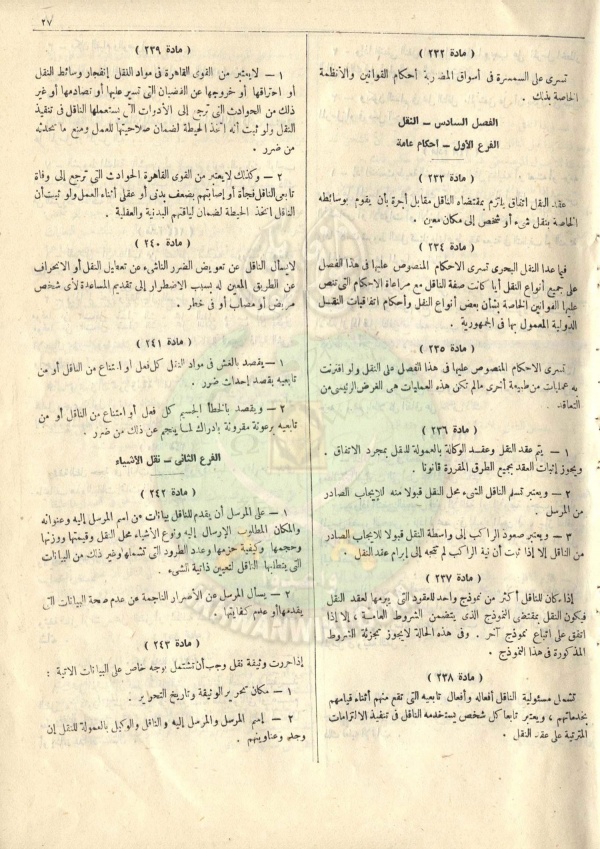 ٢٧
( مادة ٢٣٢ )
تسرى على السمسرة فى أسواق المضاربة أحكام القوانين والأنظمة
الخاصة بذلك .
الفصل السادس – النقل
الفرع الأول – أحكام عامة
( مادة ٢٣٣ )
عقد النقل اتفاق يلتزم بمقتضاه الناقل مقابل أجرة بأن يقوم بوسائطه
الخاصة بنقل شىء أو شخص إلى مكان معين .
( مادة ٢٣٤ )
فيما عدا النقل البحرى تسرى الاحكام المنصوص عليها فى هذا الفصل
على جميع أنواع النقل أيا كانت صفة الناقل مع مراعاة الاحكام التى تنص
عليها القوانين الخاصة بشأن بعض أنواع النقل وأحكام اتفاقيات النقل
الدولية المعمول بها فى الجمهورية .
( مادة ٢٣٥ )
تسرى الاحكام المنصوص عليها فى هذا الفصل على النقل ولو اقترنت
به عمليات من طبيعة أخرى مالم تكن هذه العمليات هى الغرض الرئيسى من
التعاقد
( مادة ٢٣٦ )
١ – يتم عقد النقل وعقد الوكالة بالعمولة للنقل بمجرد الاتفاق .
ويجوز إثبات العقد بجميع الطرق المقررة قانونا .
٢ – ويعتبر تسلم الناقل الشىء محل النقل قبولا منه للإيجاب الصادر
من المرسل .
٣ – ويعتبر صعود الراكب إلى واسطة النقل قبولا للايجاب الصادر
من الناقل إلا إذا ثبت أن نية الراكب لم تتجه إلى إبرام عقد النقل .
( مادة ٢٣٧ )
إذا كان للناقل أكثر من نموذج واحد للعقود التى يبرمها لعقد النقل
فيكون النقل بمقتضى النموذج الذى يتضمن الشروط العامة ، إلا إذا
اتفق على اتباع نموذج آخر . وفى هذه الحالة لايجوز تجزئة الشروط
المذكورة فى هذا النموذج .
( مادة ٢٣٨ )
تشمل مسئولية الناقل أفعاله وأفعال تابعيه التى تقع منهم أثناء قيامهم
بخدماتهم ، ويعتبر تابعا كل شخص يستخدمه الناقل فى تنفيذ الالتزامات
المترتبة على عقد النقل .
( مادة ٢٣٩ )
١ – لايعتبر من القوى القاهرة فى مواد النقل إنفجار وسائط النقل
أو احتراقها أو خروجها عن القضبان التى تسير عليها أو تصادمها أو غير
ذلك من الحوادث التى ترجع إلى الأدوات التى يستعملها الناقل فى تنفيذ
النقل ولو ثبت أنه اتخذ الحيطة لضمان صلاحيتها للعمل ومنع ما تحدثه
من ضرر .
٢ – وكذلك لايعتبر من القوى القاهرة الحوادث التى ترجع إلى وفاة
تابعى الناقل فجأة أو إصابتهم بضعف بدنى أو عقلى أثناء العمل ولو ثبت أن
الناقل اتخذ الحيطة لضمان لياقتهم البدنية والعقلية .
( مادة ٢٤٠ )
لايسأل الناقل عن تعويض الضرر الناشىء عن تعطيل النقل أو الانحراف
عن الطريق المعين له بسبب الاضطرار إلى تقديم المساعدة لأى شخص
مريض أو مصاب أو فى خطر .
( مادة ٢٤١ )
١ – يقصد بالغش فى مواد النقل كل فعل أو امتناع من الناقل أو من
تابعيه بقصد إحداث ضرر .
٢ – ويقصد بالخطأ الجسيم كل فعل أو امتناع من الناقل أو من
تابعيه برعونة مقرونة بادراك لما ينجم عن ذلك من ضرر .
الفرع الثانى – نقل الأشياء
( مادة ٢٤٢ )
١ – على المرسل أن يقدم للناقل بيانات عن اسم المرسل إليه وعنوانه
والمكان المطلوب الإرسال إليه ونوع الأشياء محل النقل وقيمتها ووزنها
وحجمها وكيفية حزمها وعدد الطرود التى تشملها وغير ذلك من البيانات
التى يتطلبها الناقل لتعيين ذاتية الشىء .
٢ – يسأل المرسل عن الأضرار الناجمة عن عدم صحة البيانات التى
يقدمها أو عدم كفايتها .
( مادة ٢٤٣ )
إذا حررت وثيقة نقل وجب أن تشتمل بوجه خاص على البيانات الآتية :
١ – مكان تحرير الوثيقة وتاريخ التحرير .
٢ – إسم المرسل والمرسل إليه والناقل والوكيل بالعمولة للنقل إن
وجد وعناوينهم .